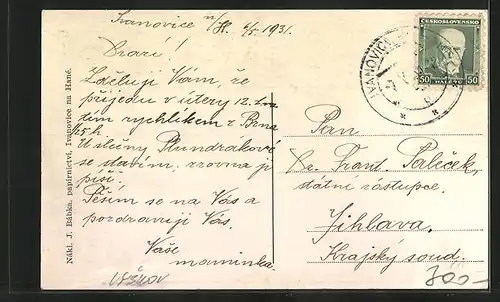 Ivanovice n/H. 6/5 1931.
Drazí!
Sděluji Vám, že
přijedu v úterý 12. t.m.
tím rychlíkem z Brna
v 5 h
U slečny Plundrákové
se stavím, zrovna jí
píši.
Těším se na Vás a
pozdravuji Vás.
Vaše
maminka.
Nákl. J. Bábka, papírnictví, Ivanovice na Hané.
ČESKOSLOVENSKO
50 HALÉŘŮ 50
IVANOVICE
Pan
Frant. Paleček,
státní zástupce.
Jihlava.
Krajský soud.
300-